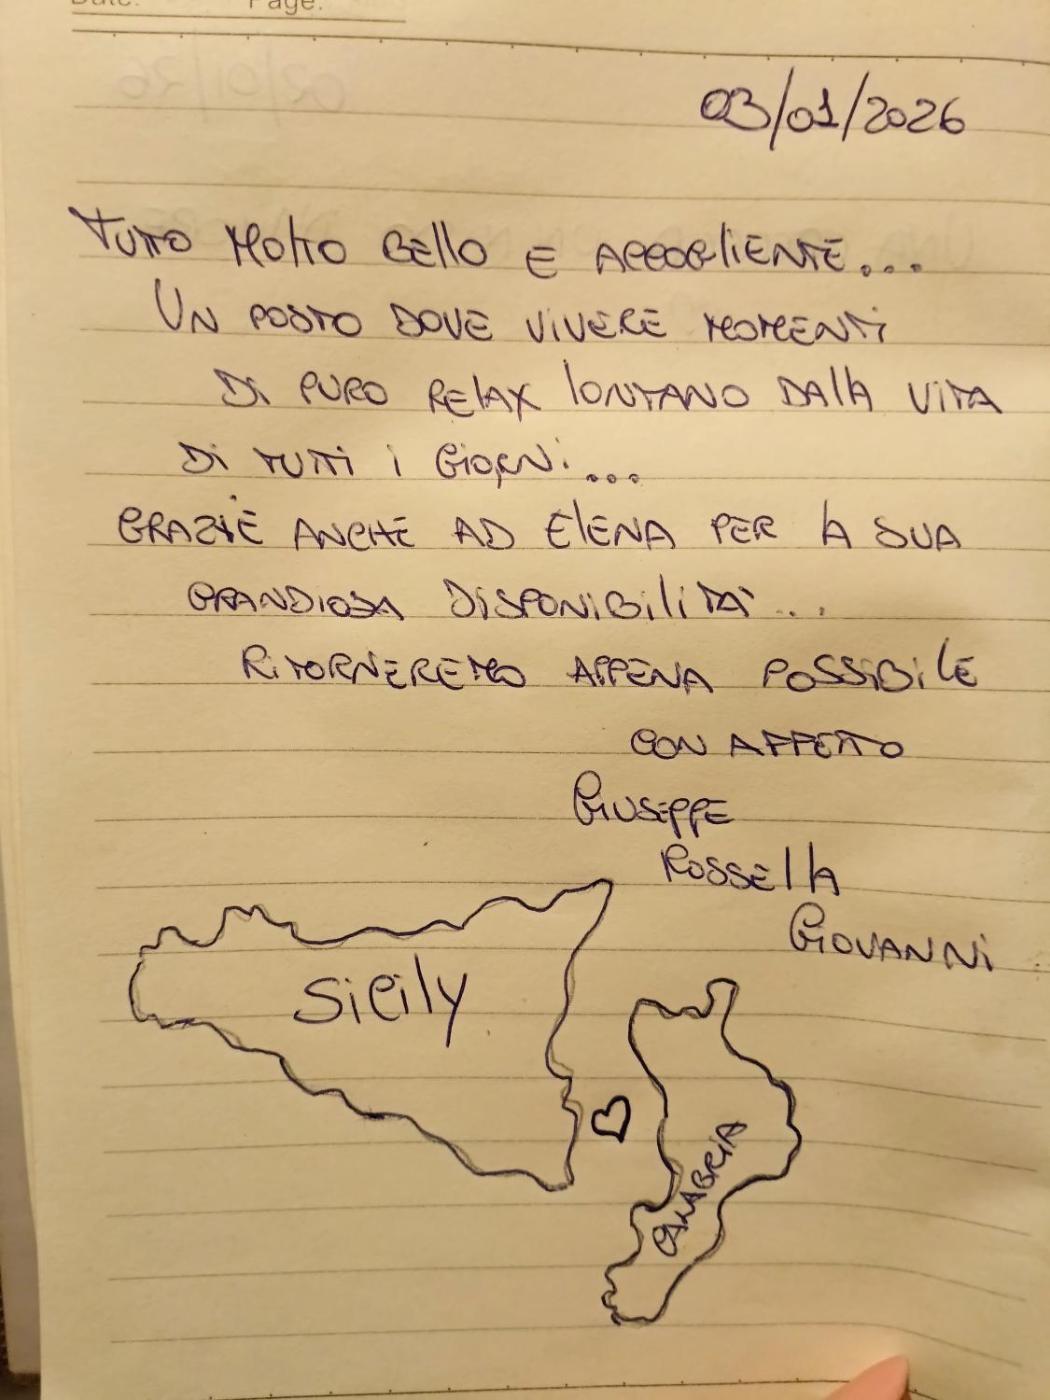 Date: Page:
03/01/2026
TUTTO MOLTO BELLO E ACCOGLIENTE...
UN POSTO DOVE VIVERE MOMENTI
DI PURO RELAX LONTANO DALLA VITA
DI TUTTI I GIORNI...
GRAZIE ANCHE AD ELENA PER LA SUA
GRANDIOSA DISPONIBILITA'...
RITORNEREMO APPENA POSSIBILE
CON AFFETTO
GIUSEPPE
ROSSELLA
GIOVANNI
Sicily
CALABRIA